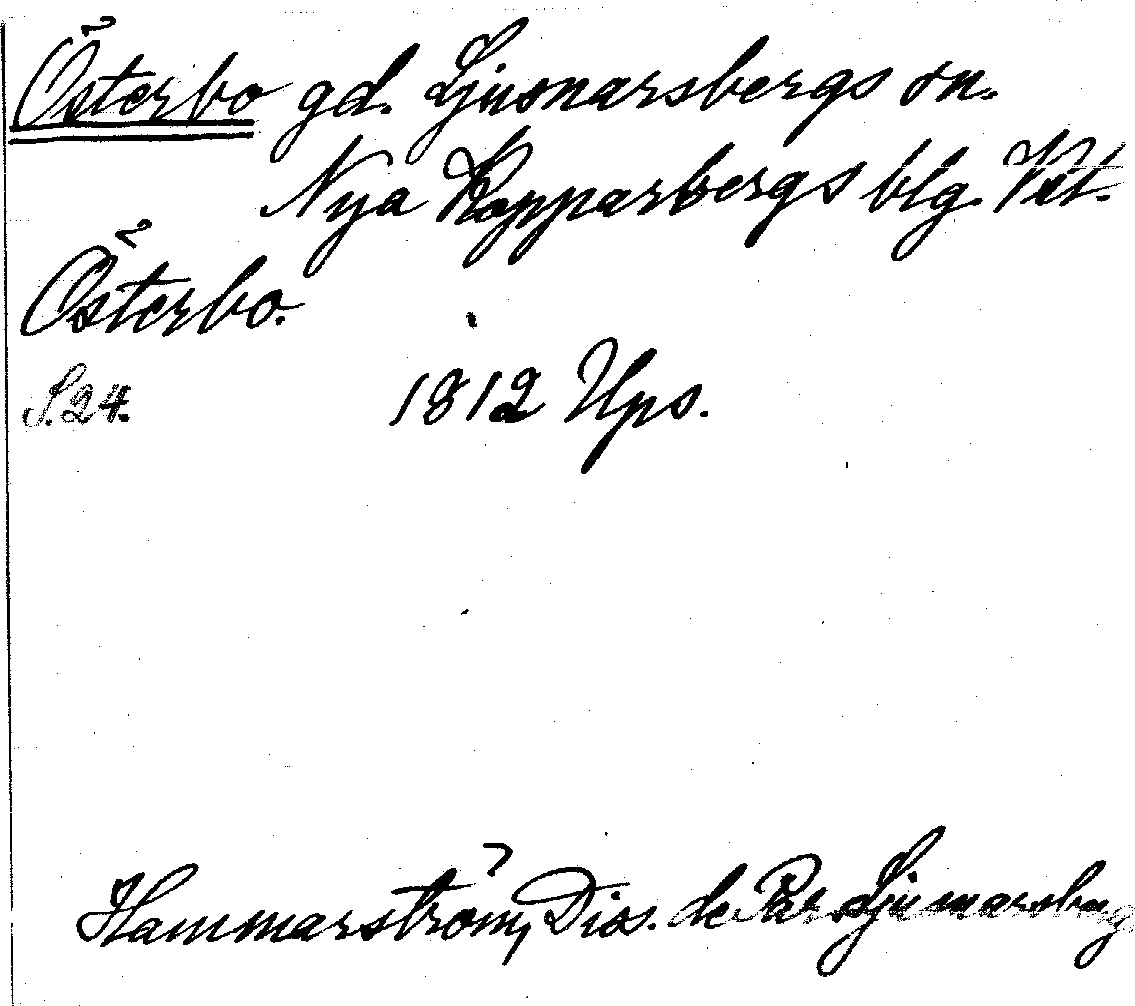 Österbo gd. Ljusnarsbergs sn.
Nya Kopparbergs blg. Vstm.
Österbo.
S. 24. 1812 Ups.
Hammarström, Diss. de Par. Ljusnarsberg